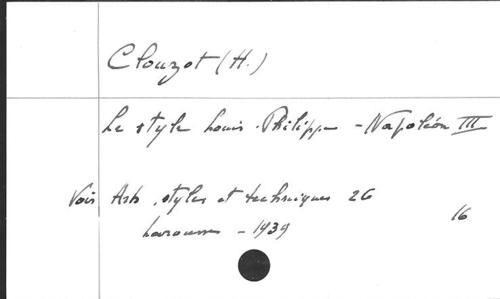 Clouzot (H.)
Le style Louis-Philippe - Napoléon III
Voir Arts, styles et techniques 26
Larousse - 1939
16